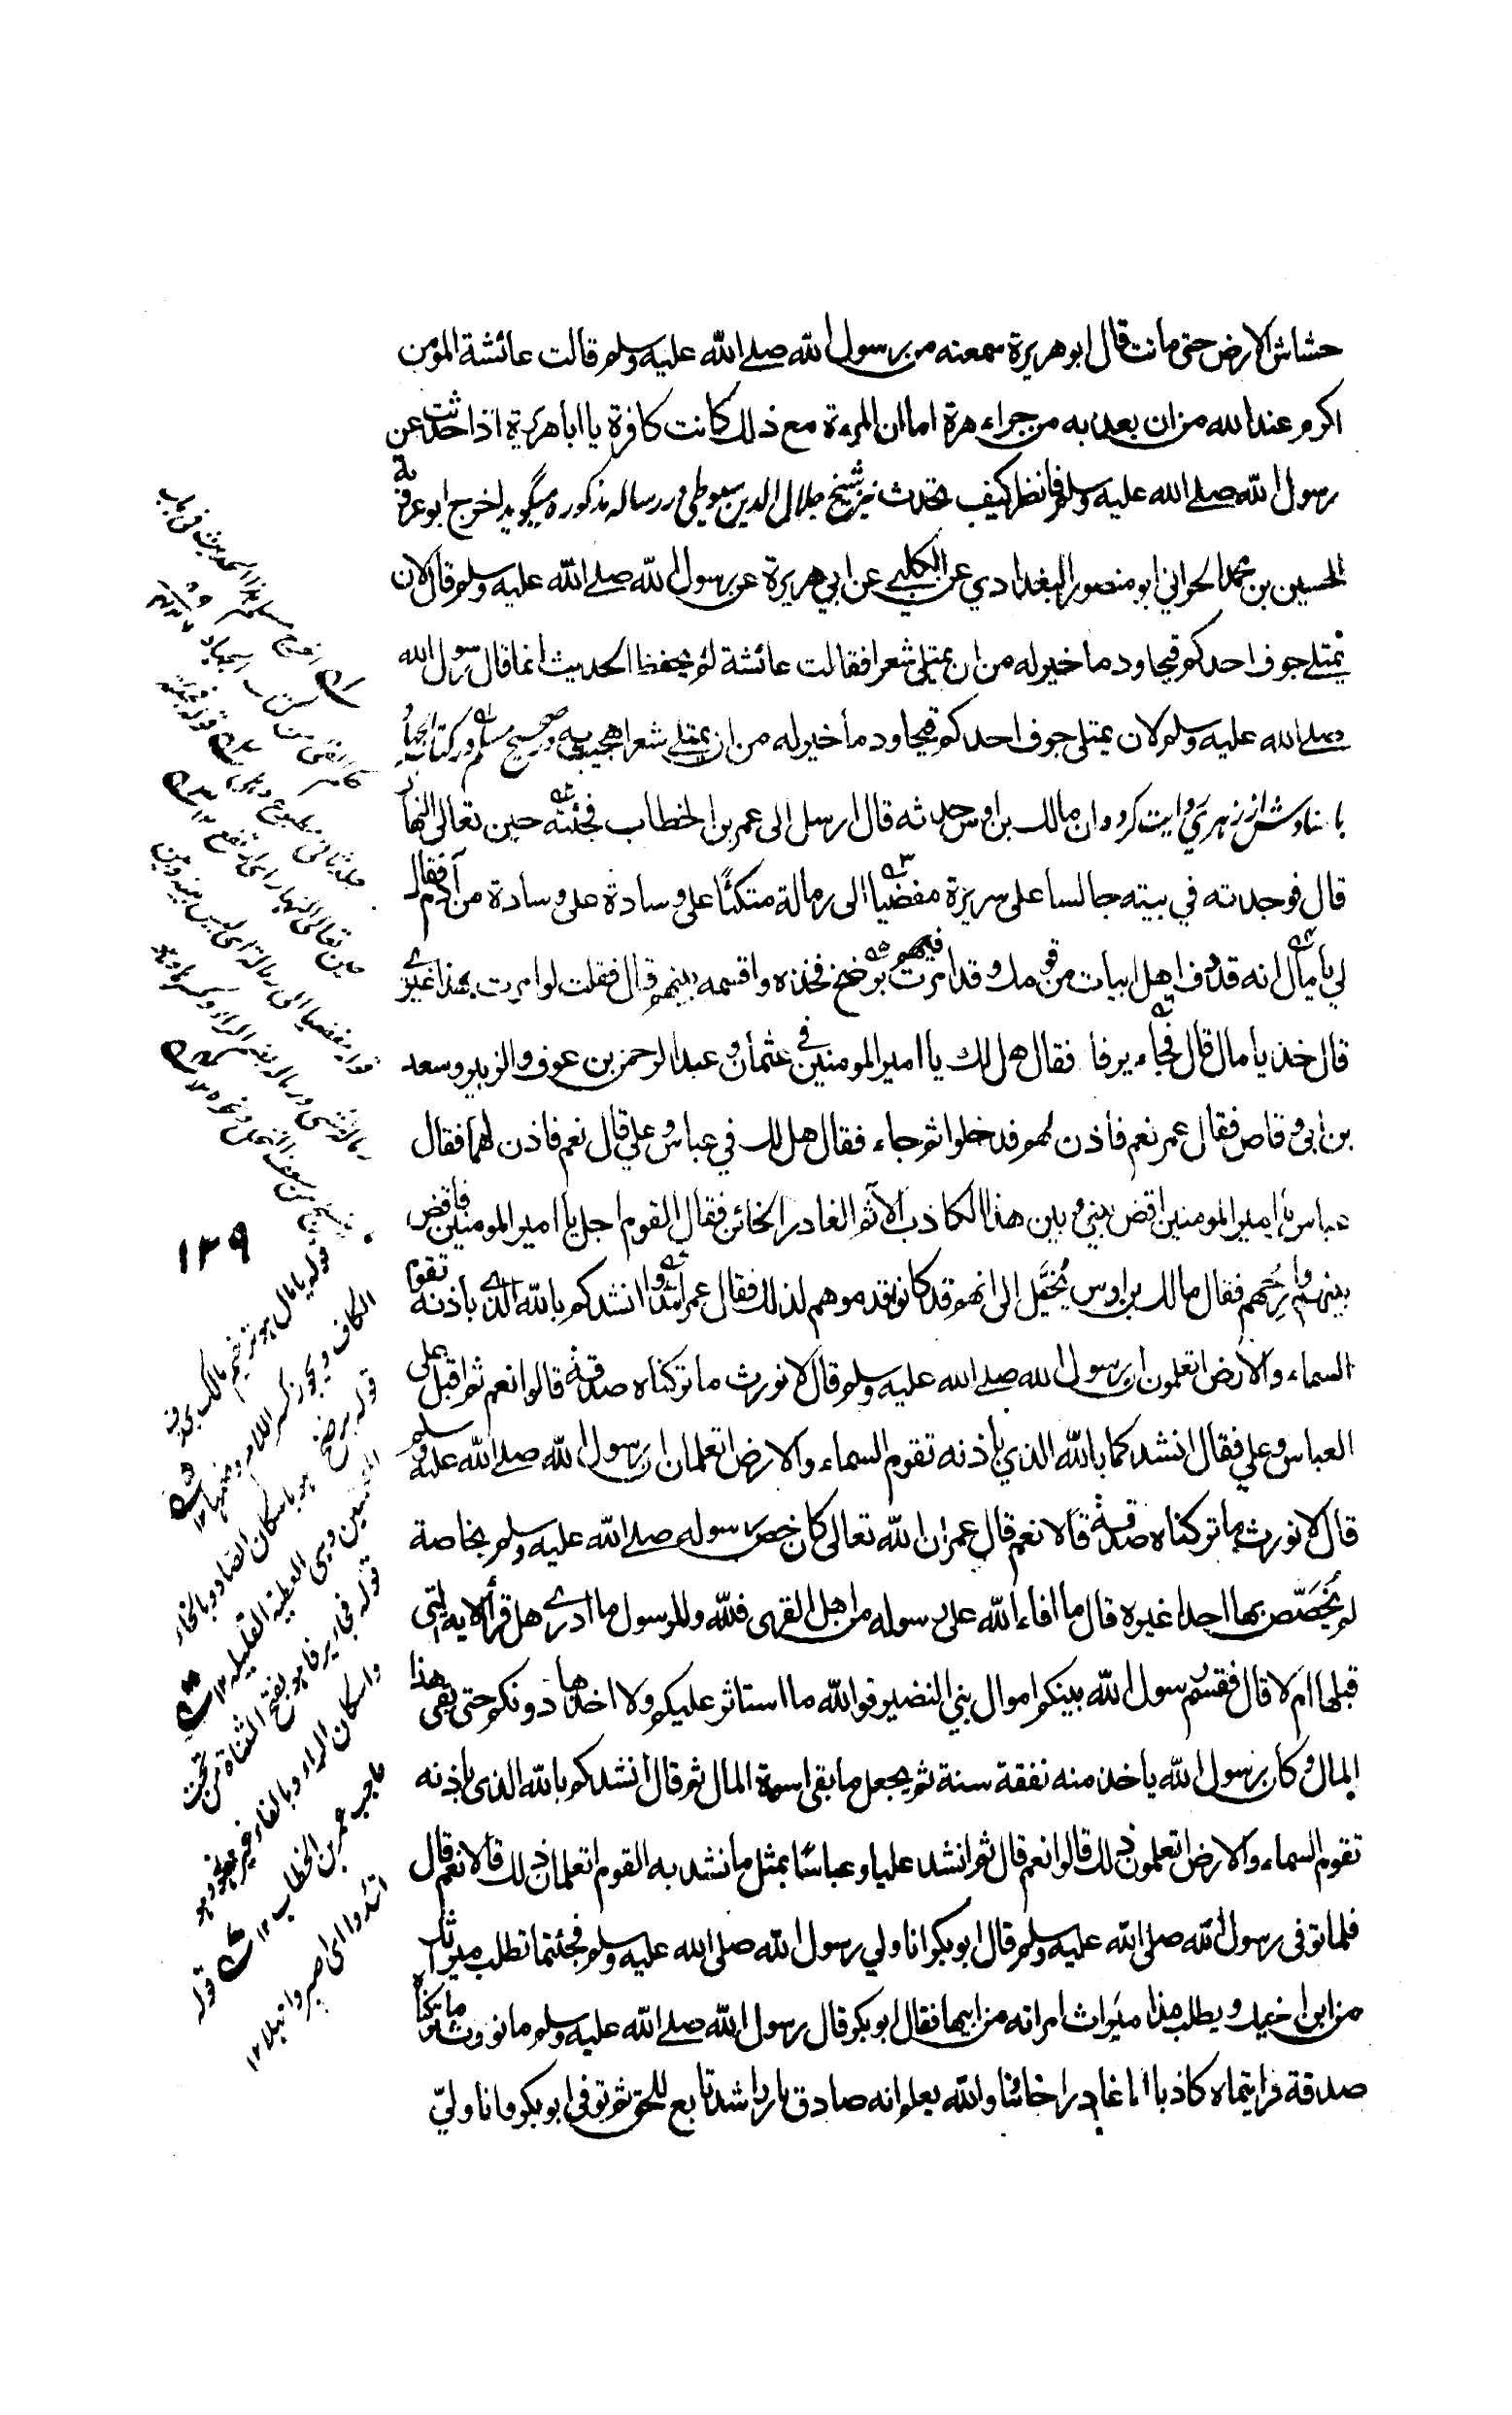 حشاش الارض حتى ماتت قال ابو هريرة سمعته من رسول الله صلى الله عليه وسلم قالت عائشة المؤمن
اكرم عند الله من ان يعذبه من جراء هرة اما ان المرءة مع ذلك كانت كافرة يا ابا هريرة اذا حدثت عن
رسول الله صلے الله عليه وسلم فانظر كيف تحدث نيز شيخ جلال الدين سيوطي در رساله مذكوره ميگويد اخرج ابو عروبة
الحسين بن محمد الحراني ابو منصور البغدادي عن الكلبے عن ابي هريرة عن رسول الله صلے الله عليه وسلم قال لان
يمتلے جوف احدكم قيحا ودما خير له من ان يمتلي شعرا فقالت عائشة لم يحفظ الحديث انما قال رسول الله
صلے الله عليه وسلم لان يمتلى جوف احدكم قيحا ودما خير له من ان يمتلے شعرا هجيت به ودر صحيح مسلم در كتاب الجهاد
باسنادش از زهري روايت كرده ان مالك بن اوس حدثه قال ارسل الى عمر بن الخطاب فجئته حين تعالى النهار
قال فوجدته في بيته جالسا على سريرة مفضيا الى رمالة متكئا على وسادة على وسادة من ادم فقال
لي يا مال انه قد دف اهل ابيات من قومك وقد امرت فيهم برضخ فخذه واقسمه بينهم قال فقلت لو امرت بهذا غيرے
قال خذ يا مال قال فجاء يرفا فقال هل لك يا امير المومنين في عثمان وعبد الرحمن بن عوف والزبير وسعد
بن ابي وقاص فقال عمر نعم فاذن لهم فدخلوا ثم جاء فقال هل لك في عباس وعلي قال نعم فاذن لهما فقال
عباس يا امير المومنين اقض بيني وبين هذا الكاذب الآثم الغادر الخائن فقال القوم اجل يا امير المومنين فاقض
بينهم وارحهم فقال مالك بن اوس يخيل الى انهم قد كانوا قدموهم لذلك فقال عمر اتئدوا انشدكم بالله الذي باذنه تقوم
السماء والارض اتعلمون ان رسول الله صلے الله عليه وسلم قال لا نورث ما تركناه صدقة قالوا نعم ثم اقبل على
العباس وعلي فقال انشدكما بالله الذي باذنه تقوم السماء والارض اتعلمان ان رسول الله صلے الله عليه وسلم
قال لا نورث ما تركناه صدقة قالا نعم قال عمر ان الله تعالى كان خص رسوله صلے الله عليه وسلم بخاصة
لم يخصص بها احدا غيره قال ما افاء الله على رسوله من اهل القرى فلله وللرسول ما ادرے هل قرأ الاية التي
قبلها ام لا قال فقسم رسول الله بينكم اموال بني النضير فوالله ما استاثر عليكم ولا اخذها دونكم حتى بقى هذا
المال وكان رسول الله ياخذ منه نفقة سنة ثم يجعل ما بقى اسوة المال ثم قال انشدكم بالله الذى باذنه
تقوم السماء والارض اتعلمون ذلك قالوا نعم قال ثم انشد عليا وعباسا بمثل ما نشد به القوم اتعلمان ذلك قالا نعم قال
فلما توفى رسول الله صلى الله عليه وسلم قال ابو بكر انا ولي رسول الله صلى الله عليه وسلم فجئتما تطلب ميراثك
من ابن اخيك ويطلب هذا ميراث امراته من ابيها فقال ابو بكر قال رسول الله صلے الله عليه وسلم ما نورث ما تركناه
صدقة فرايتماه كاذبا اثما غادرا خائنا والله يعلم انه صادق بار راشد تابع للحق ثم توفى ابو بكر وانا وليّ
١٣٩
قوله يا مال هو ترخيم مالك بحذف
الكاف ويجوز كسر اللام وضمها ١٢
قوله برضخ هو باسكان الضاد وبالخاء
المعجمتين وهى العطية القليلة ١٢
قوله فجاء يرفا هو بفتح المثناة من تحت
واسكان الراء وبالفاء غير مهموز وهو
حاجب عمر بن الخطاب ١٢ قوله
اتئدوا اى اصبروا ١٢